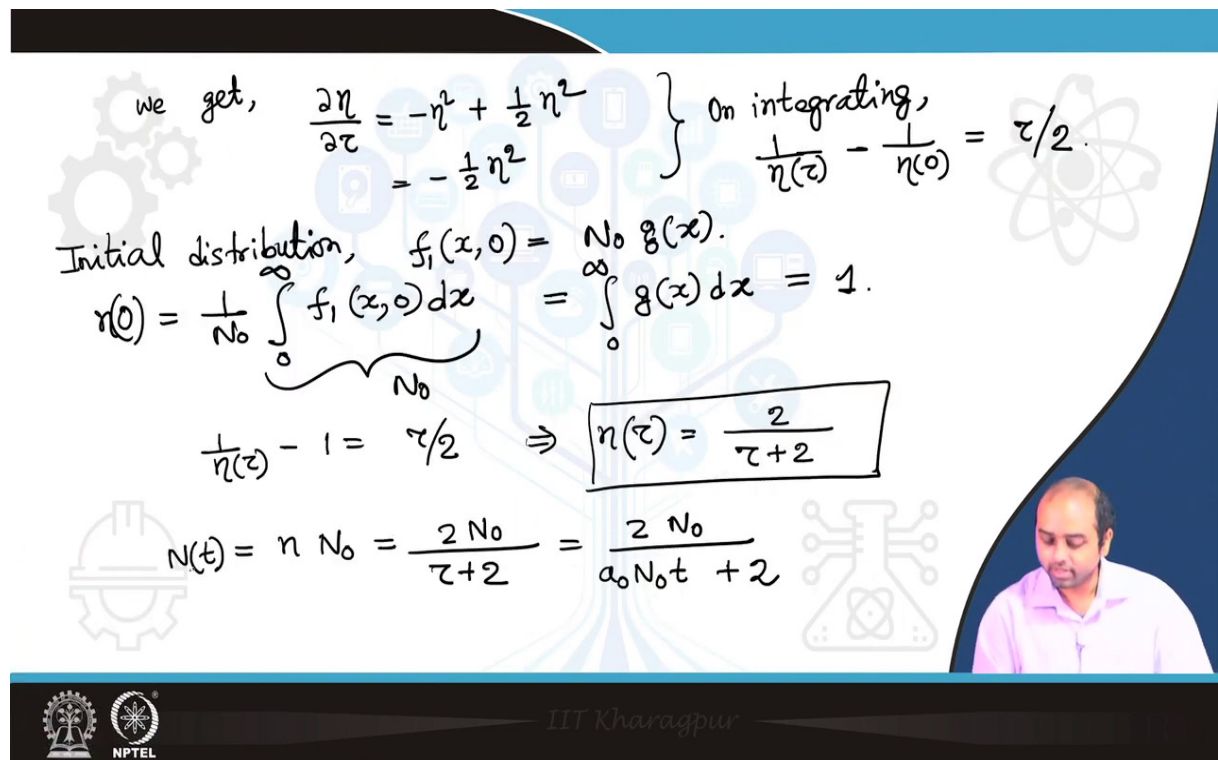 we get, ∂η/∂τ = -η² + ½ η² } On integrating,
= -½ η² 1/η(τ) - 1/η(0) = τ/2.
Initial distribution, f₁(x,0) = N₀ g(x).
η(0) = 1/N₀ ∫₀^∞ f₁(x,0)dx = ∫₀^∞ g(x)dx = 1.
N₀
1/η(τ) - 1 = τ/2 ⇒ η(τ) = 2/(τ+2)
N(t) = η N₀ = 2 N₀/(τ+2) = 2 N₀/(a₀N₀t +2)
IIT Kharagpur
NPTEL